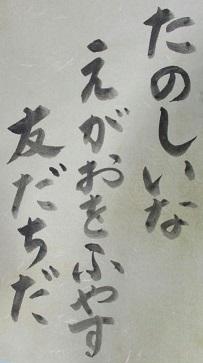 たのしいな
えがおをふやす
友だちだ